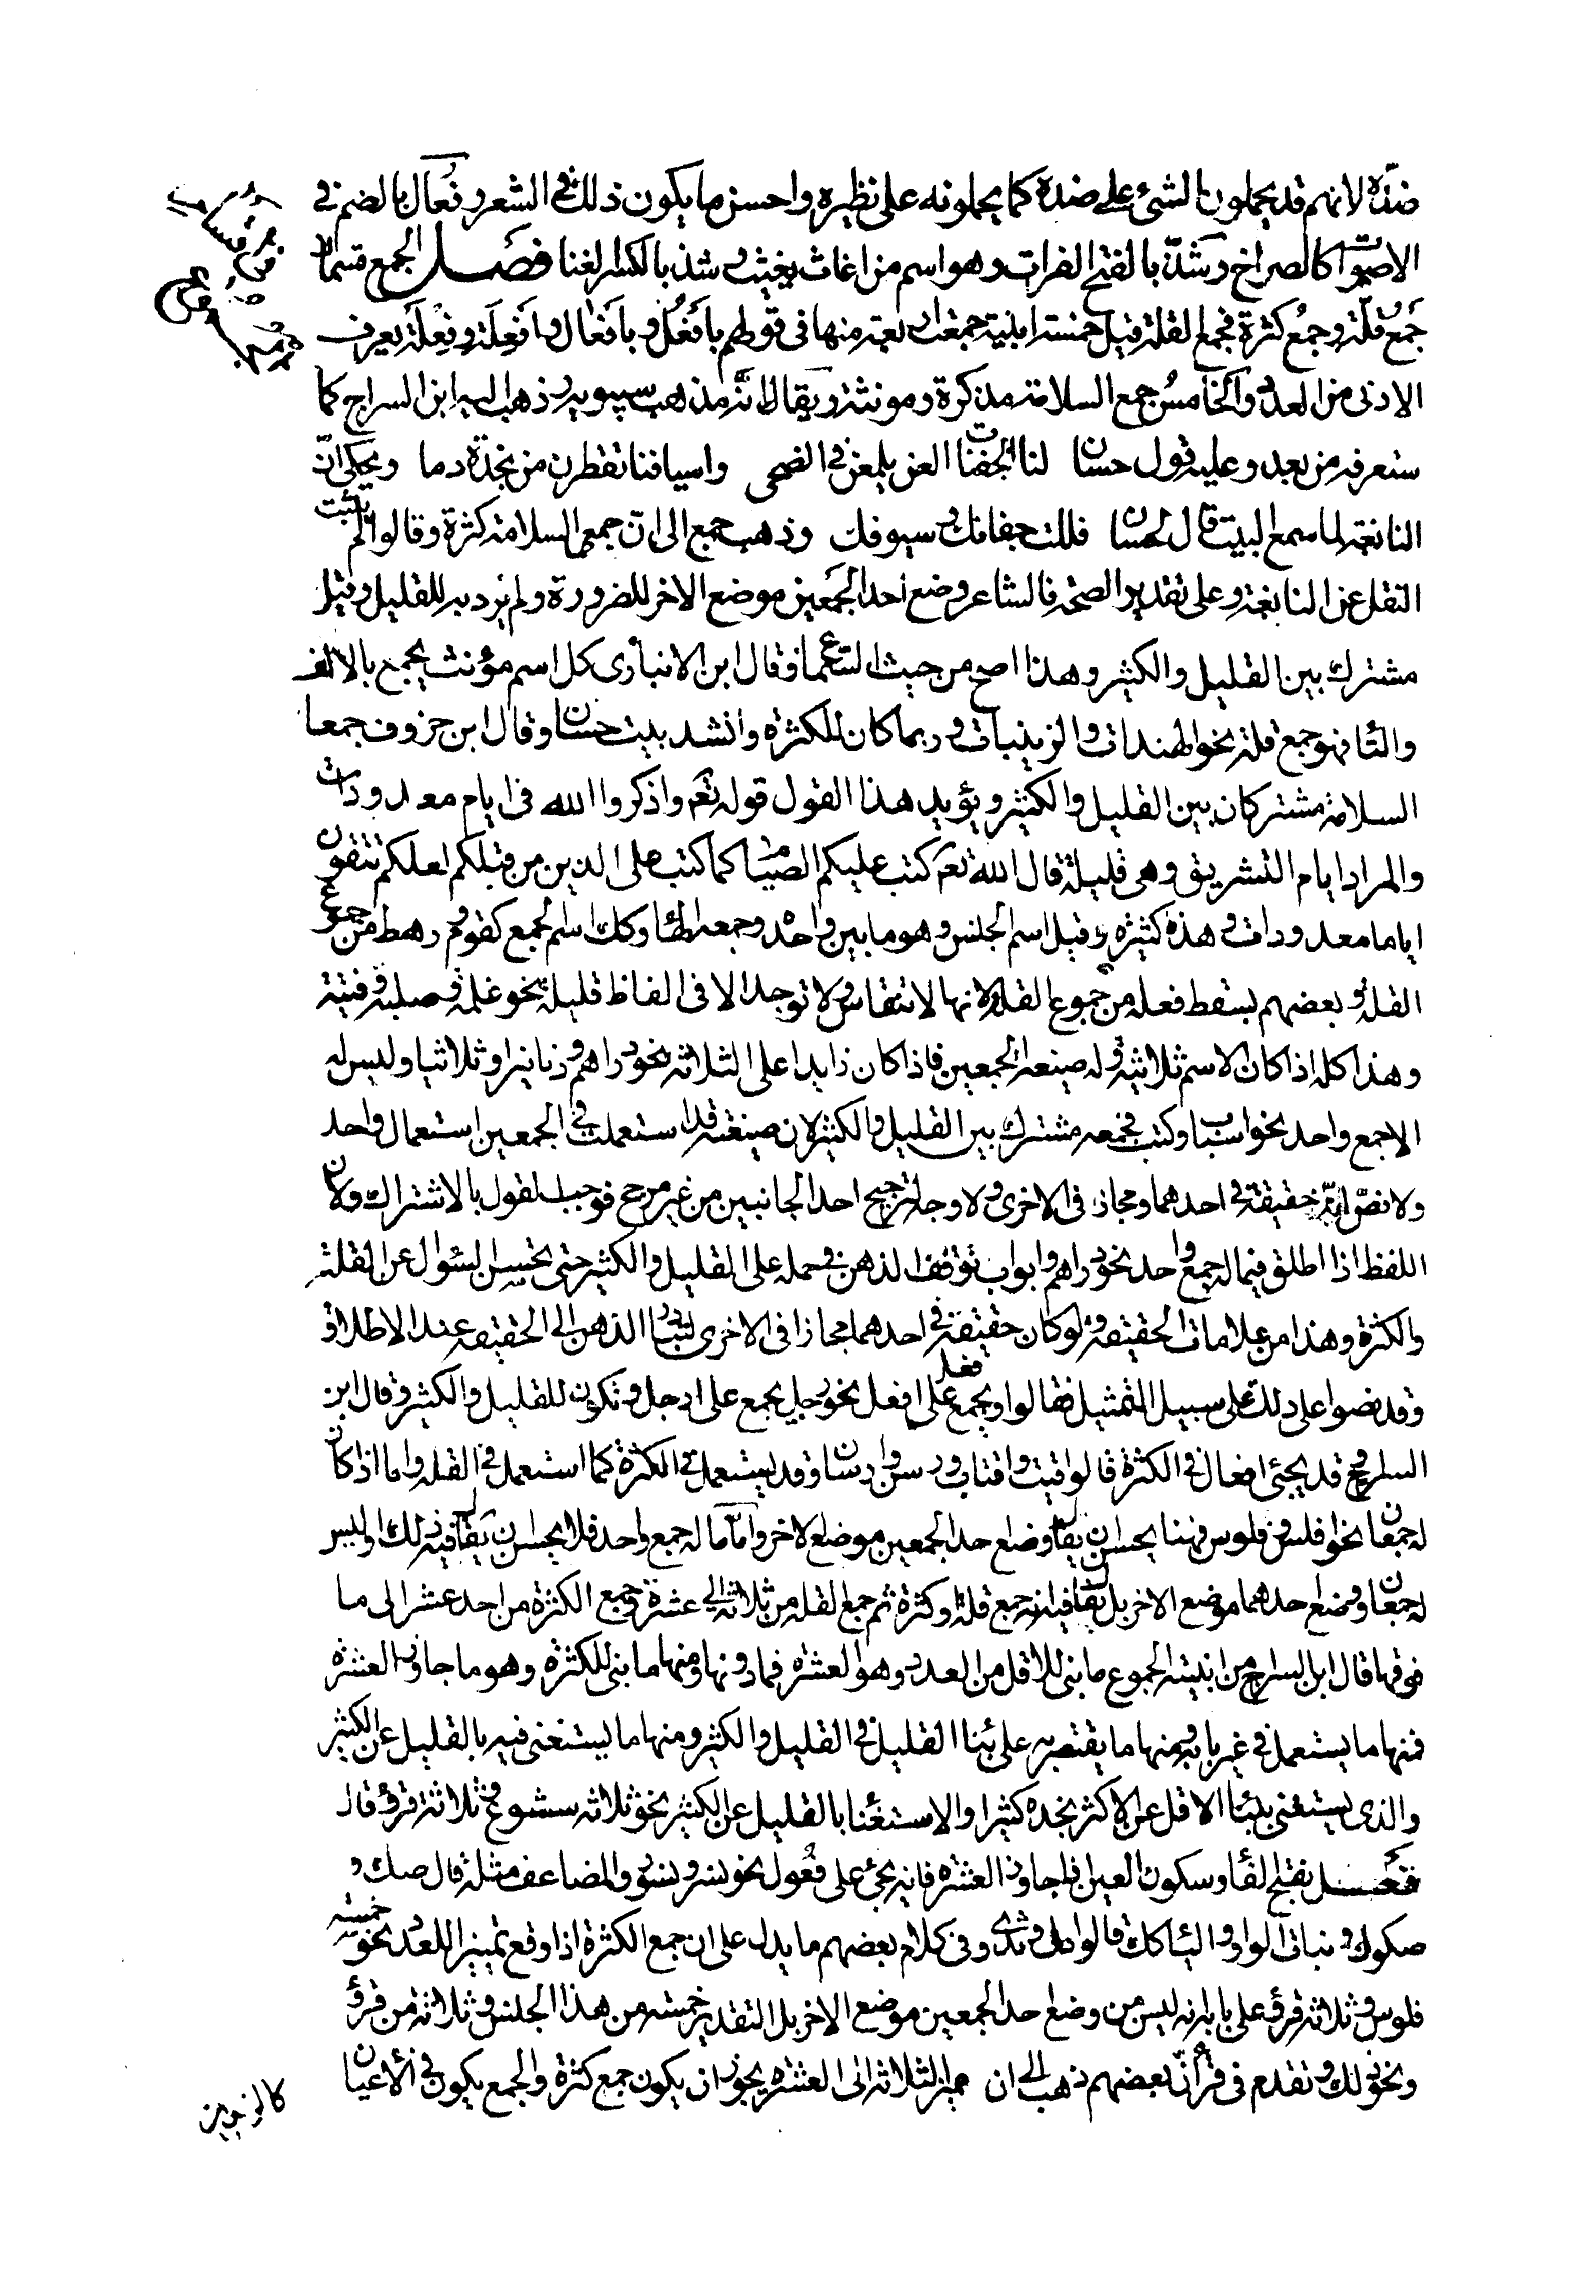 ضده لانهم قد يحملون الشئ على ضده كما يحملونه على نظيره واحسن ما يكون ذلك فى الشعر وفعال بالضم فى
الاصوات كالصراخ وشذ بالفتح الغراث وهو اسم من اغاث يغيث وشذ بالكسر لغنا فصل الجمع قسمان
جمع قلة وجمع كثرة فجمع القلة قيل خمسة ابنية جمعت اربعة منها فى قولهم بافعل وبافعال وافعلة وفعلة يعرف
الادنى من العدد والخامس جمع السلامة مذكره ومونثه ويقال انه مذهب سيبويه وذهب اليه ابن السراج كما
ستعرفه من بعد وعليه قول حسان لنا الجفنات الغر يلمعن فى الضحى واسيافنا تقطرن من نجدة دما ويحكى ان
النابغة لما سمع البيت قال لحسان قللت جفانك وسيوفك وذهب جمع الى ان جمعى السلامة كثرة وقالوا لم يثبت
النقل عن النابغة وعلى تقدير الصحة فالشاعر وضع احد الجمعين موضع الاخر للضرورة ولم يرد به للقليل وقيل
مشترك بين القليل والكثير وهذا اصح من حيث الستعمال وقال ابن الانبارى كل اسم مؤنث يجمع بالالف
والتا فهو جمع قلة نحو الهندات والزينبات وربما كان للكثرة وانشد بيت حسان وقال ابن خروف جمعا
السلامة مشتركان بين القليل والكثير ويؤيد هذا القول قوله تعم واذكروا الله فى ايام معدودات
والمراد ايام التشريق وهى قليلة قال الله تعم كتب عليكم الصيام كما كتب على الذين من قبلكم لعلكم تتقون
اياما معدودات وهذه كثيرة وقيل اسم الجنس وهو ما بين واحده وجمعه الها وكك اسم الجمع كقوم ورهط من جموع
القلة وبعضهم يسقط فعلة من جموع القلة لانها لا تنقاس ولا توجد الا فى الفاظ قليلة نحو غلمة وصبية وفتية
وهذا كله اذا كان الاسم ثلاثيه وله صيغة الجمعين فاذا كان زايدا على الثلاثة نحو دراهم ودنانير او ثلاثيا وليس له
الا جمع واحد نحو اسباب وكتب فجمعه مشترك بين القليل والكثير لان صيغته قد استعملت فى الجمعين استعمال واحد
ولا نص انه حقيقة فى احدهما ومجاز فى الاخرى ولا وجه لترجيح احد الجانبين من غير مرجح فوجب القول بالاشتراك ولان
اللفظ اذا اطلق فيما له جمع واحد نحو دراهم وابواب توقف الذهن فى حمله على القليل والكثير حتى يحسن السئوال عن القلة
والكثرة وهذا من علامات الحقيقة ولو كان حقيقة فى احدهما مجازا فى الاخرى لتبادر الذهن الى الحقيقة عند الاطلاق
وقد نصوا على ذلك على سبيل التمثيل فقالوا ويجمع فعل على افعل نحو رجل يجمع على ارجل وتكون للقليل والكثير وقال ابن
السراج وقد يجئ افعال فى الكثرة قالوا قتب واقتاب ورسن وارسان وقد يستعمل فى الكثرة كما استعمل فى القلة واما اذا كان
له جمعان نحو افلس وفلوس فهنا يحسن ان يقال وضع احد الجمعين موضع الاخر واما ما له جمع واحد فلا يحسن ان يقال فيه ذلك اذ ليس
له جمعان وضع احدهما موضع الاخر بل يقال فيه انه جمع قلة وكثرة ثم جمع القلة من ثلاثة الى عشرة وجمع الكثرة من احد عشر الى ما
فوقها قال ابن السراج من ابنية الجموع ما بنى للاقل من العدد وهو العشرة فما دونها ومنها ما بنى للكثرة وهو ما جاوز العشرة
فمنها ما يستعمل فى غير بابه ومنها ما يقتصر به على بنا القليل فى القليل والكثير ومنها ما يستغنى فيه بالقليل عن الكثير
والذى يستغنى ببنا الاقل عن الاكثر نجده كثيرا والاستغنا بالقليل عن الكثير نحو ثلاثة شسوع وثلاثة قرؤ قال
فعل بفتح الفا وسكون العين اذا جاوز العشرة فانه يجئ على فعول نحو نسر ونسور والمضاعف مثله قال صك و
صكوك وبنات الواو واليا كك قالوا دلى وثدى وفى كلام بعضهم ما يدل على ان جمع الكثرة اذا وقع تمييز اللعدد نحو خمسة
فلوس وثلاثة قرؤ على بابه انه ليس من وضع احد الجمعين موضع الاخر بل التقدير خمسة من هذا الجنس وثلاثة من قرؤ
ونحو ذلك وتقدم فى قرأ ان بعضهم ذهب الى ان مميز الثلاثة الى العشرة يجوز ان يكون جمع كثرة والجمع يكون فى الاعيان
كالزيدين